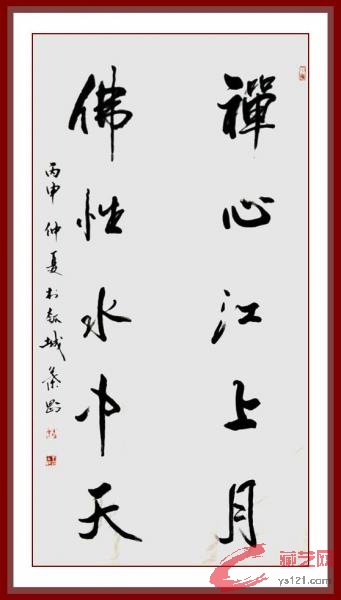 禪心江上月
佛性水中天
丙申仲夏於瓠城秦黔
藏艺网
ys121.com